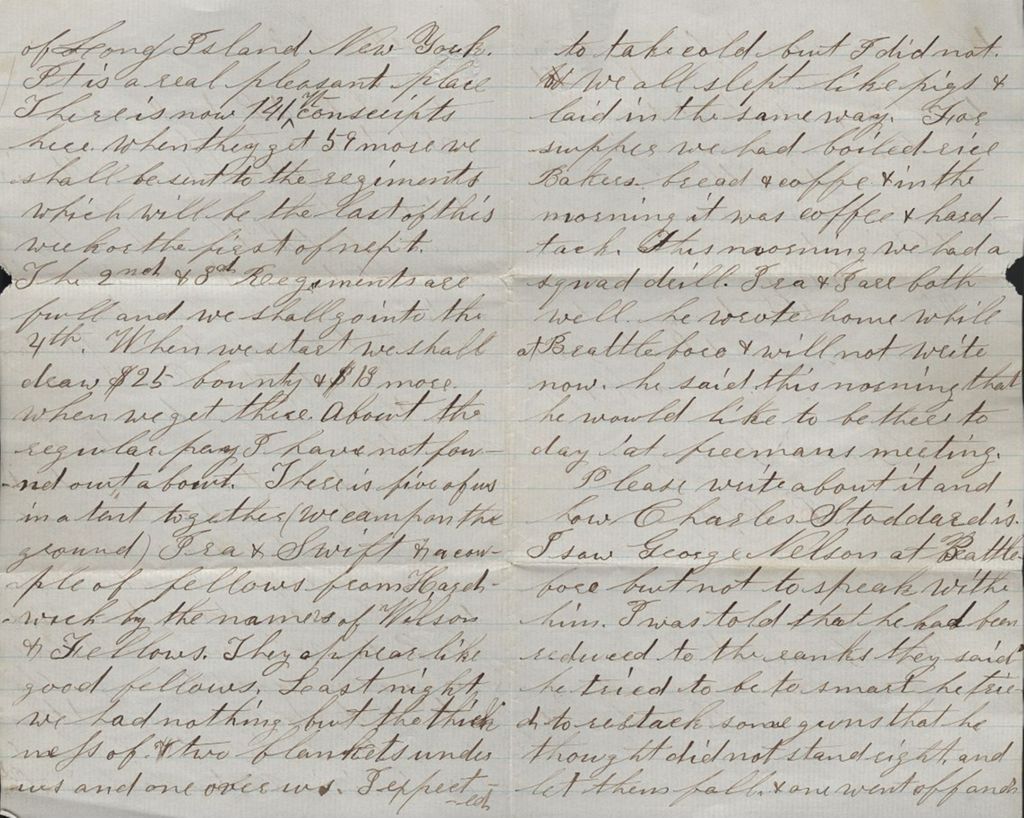 of Long Island New York.
It is a real pleasant place
There is now 141 Vt conscripts
here. when they get 59 more we
shall be sent to the regiments
which will be the last of this
week or the first of next.
The 2nd & 3d Regiments are
full and we shall go into the
4th. When we start we shall
draw $25 bounty & $13 more
when we get there. About the
regular pay I have not fou-
-nd out about. There is five of us
in a tent together (we camp on the
ground) Ira & Swift & a cou-
ple of fellows from Hard-
wick by the names of Wilson
& Fellows. They appear like
good fellows. Last night
we had nothing but the thick
ness of two blankets under
us and one over us. I expect-
-ed
to take cold but I did not.
We all slept like pigs &
laid in the same way. For
supper we had boiled rice
Bakers bread & coffe & in the
morning it was coffee & hard-
tack. This morning we had a
squad drill. Ira & I are both
well. he wrote home while
at Brattleboro & will not write
now. he said this morning that
he would like to be there to
day at freemans meeting.
Please write about it and
how Charles Stoddard is.
I saw George Nelson at Brattle
boro but not to speak with
him. I was told that he had been
reduced to the ranks they said
he tried to be to smart he trie
d to restack some guns that he
thought did not stand right, and
let them fall. & one went off and